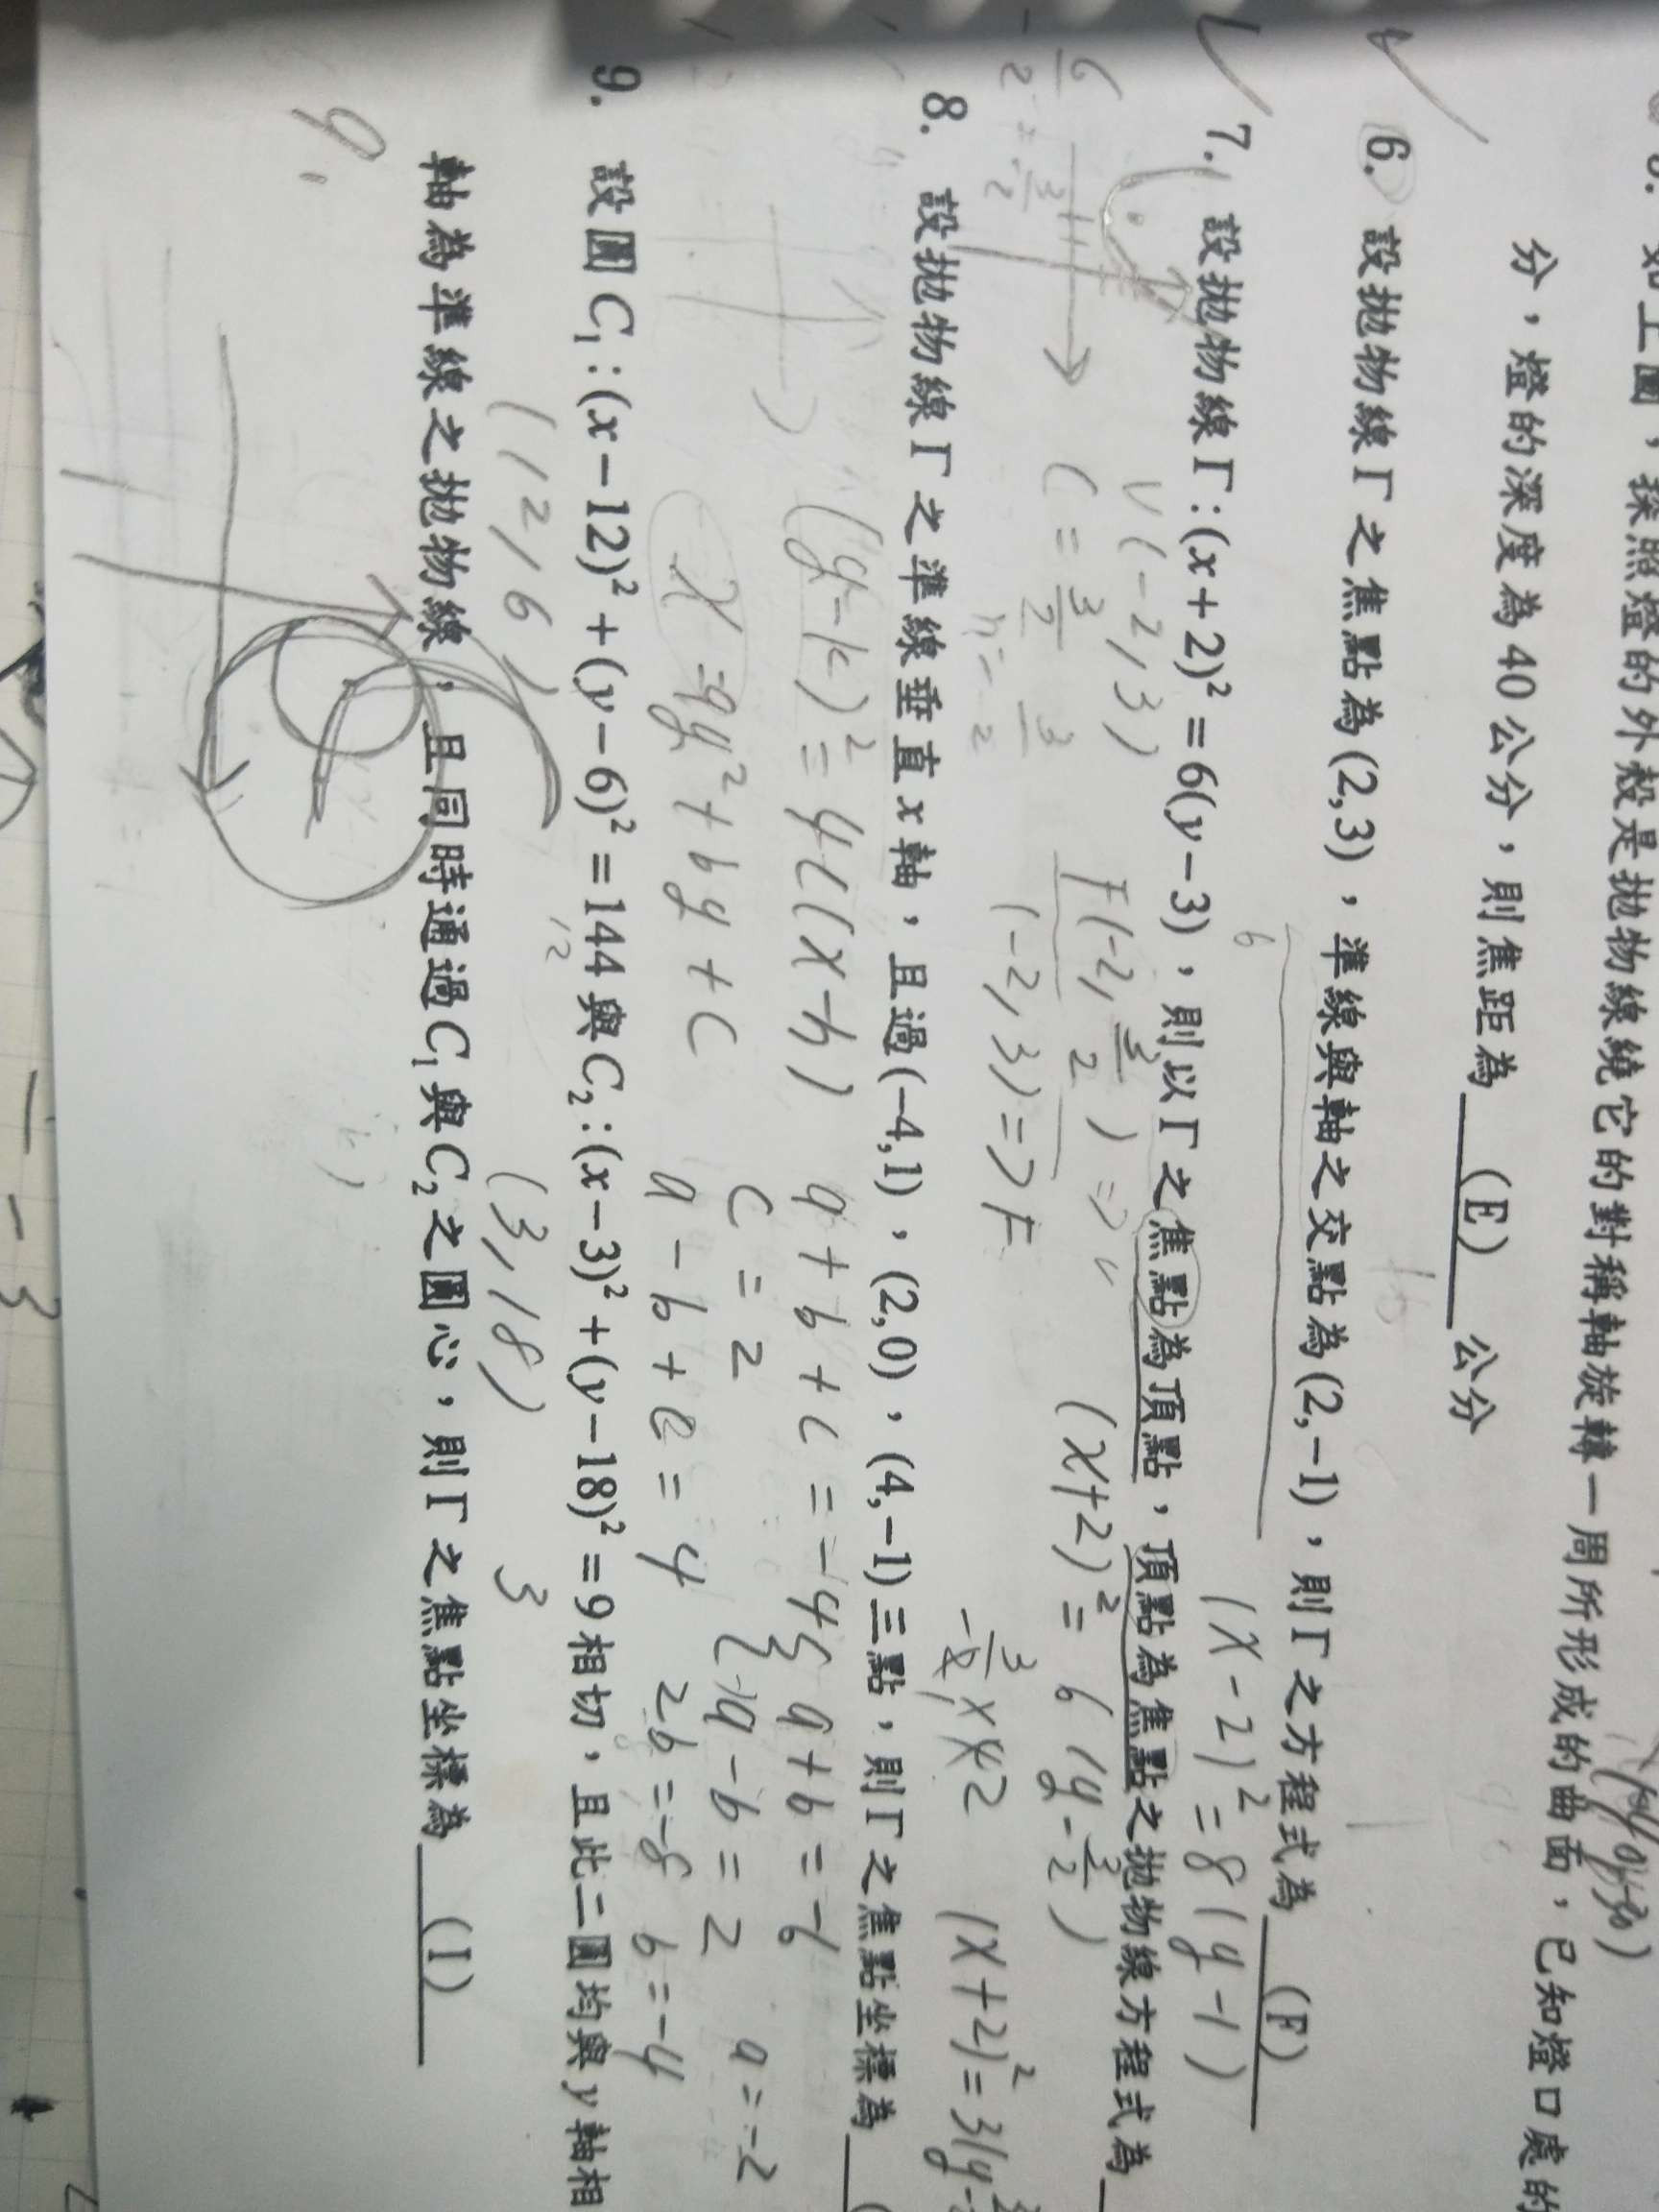 如上圖，探照燈的外殼是拋物線繞它的對稱軸旋轉一周所形成的曲面，已知燈口處的
分，燈的深度為40公分，則焦距為 (E) 公分
6. 設拋物線Γ之焦點為(2,3)，準線與軸之交點為(2,−1)，則Γ之方程式為 (F)
(x-2)²=8(y-1)
7. 設拋物線Γ:(x+2)²=6(y−3)，則以Γ之焦點為頂點，頂點為焦點之拋物線方程式為
V(-2,3)
F(-2, 3/2)=>V
(x+2)²=6(y-3/2)
c=3/2
(-2,3)=>F
(x+2)²=3(y-
8. 設拋物線Γ之準線垂直x軸，且過(−4,1)，(2,0)，(4,−1)三點，則Γ之焦點坐標為
(y-k)²=4c(x-h)
a+b+c=-4
a+b=-6
c=2
a-b=2
a=-2
x=ay²+by+c
a-b+c=4
2b=-8
b=-4
9. 設圓C₁:(x−12)²+(y−6)²=144與C₂:(x−3)²+(y−18)²=9相切，且此二圓均與y軸相
12
(12,6)
(3,18)
3
軸為準線之拋物線，且同時通過C₁與C₂之圓心，則Γ之焦點坐標為 (I)
9.